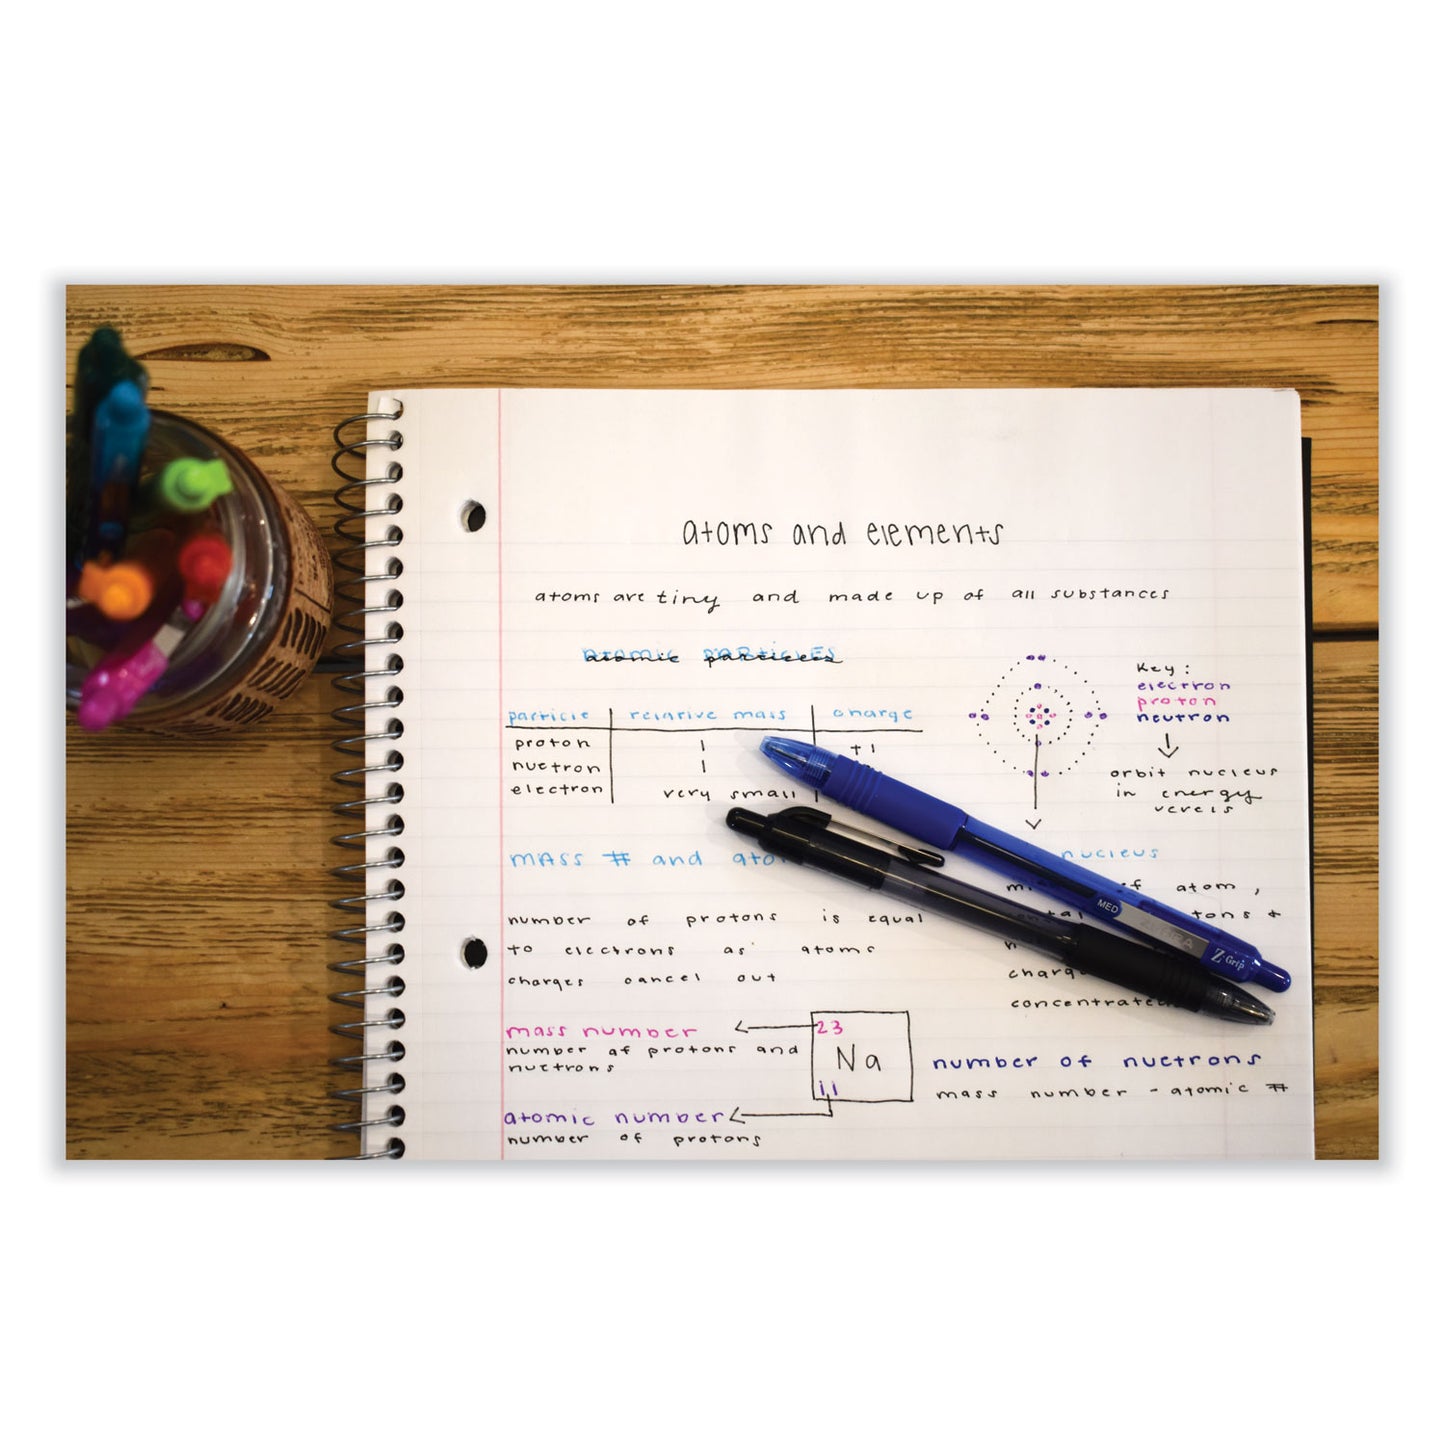 atoms and elements
atoms are tiny and made up of all substances
ATOMIC PARTICLES
particle relative mass charge
proton 1 +1
nuetron 1
electron very small
Key:
electron
proton
neutron
orbit nucleus
in energy
nucleus
MASS # and
of atom,
number of protons is equal
to electrons as atoms
charges cancel out
mass number
number of protons and
nuetrons
23
Na
11
atomic number
number of protons
number of nuetrons
mass number - atomic #
MED
ZEBRA
Z-Grip